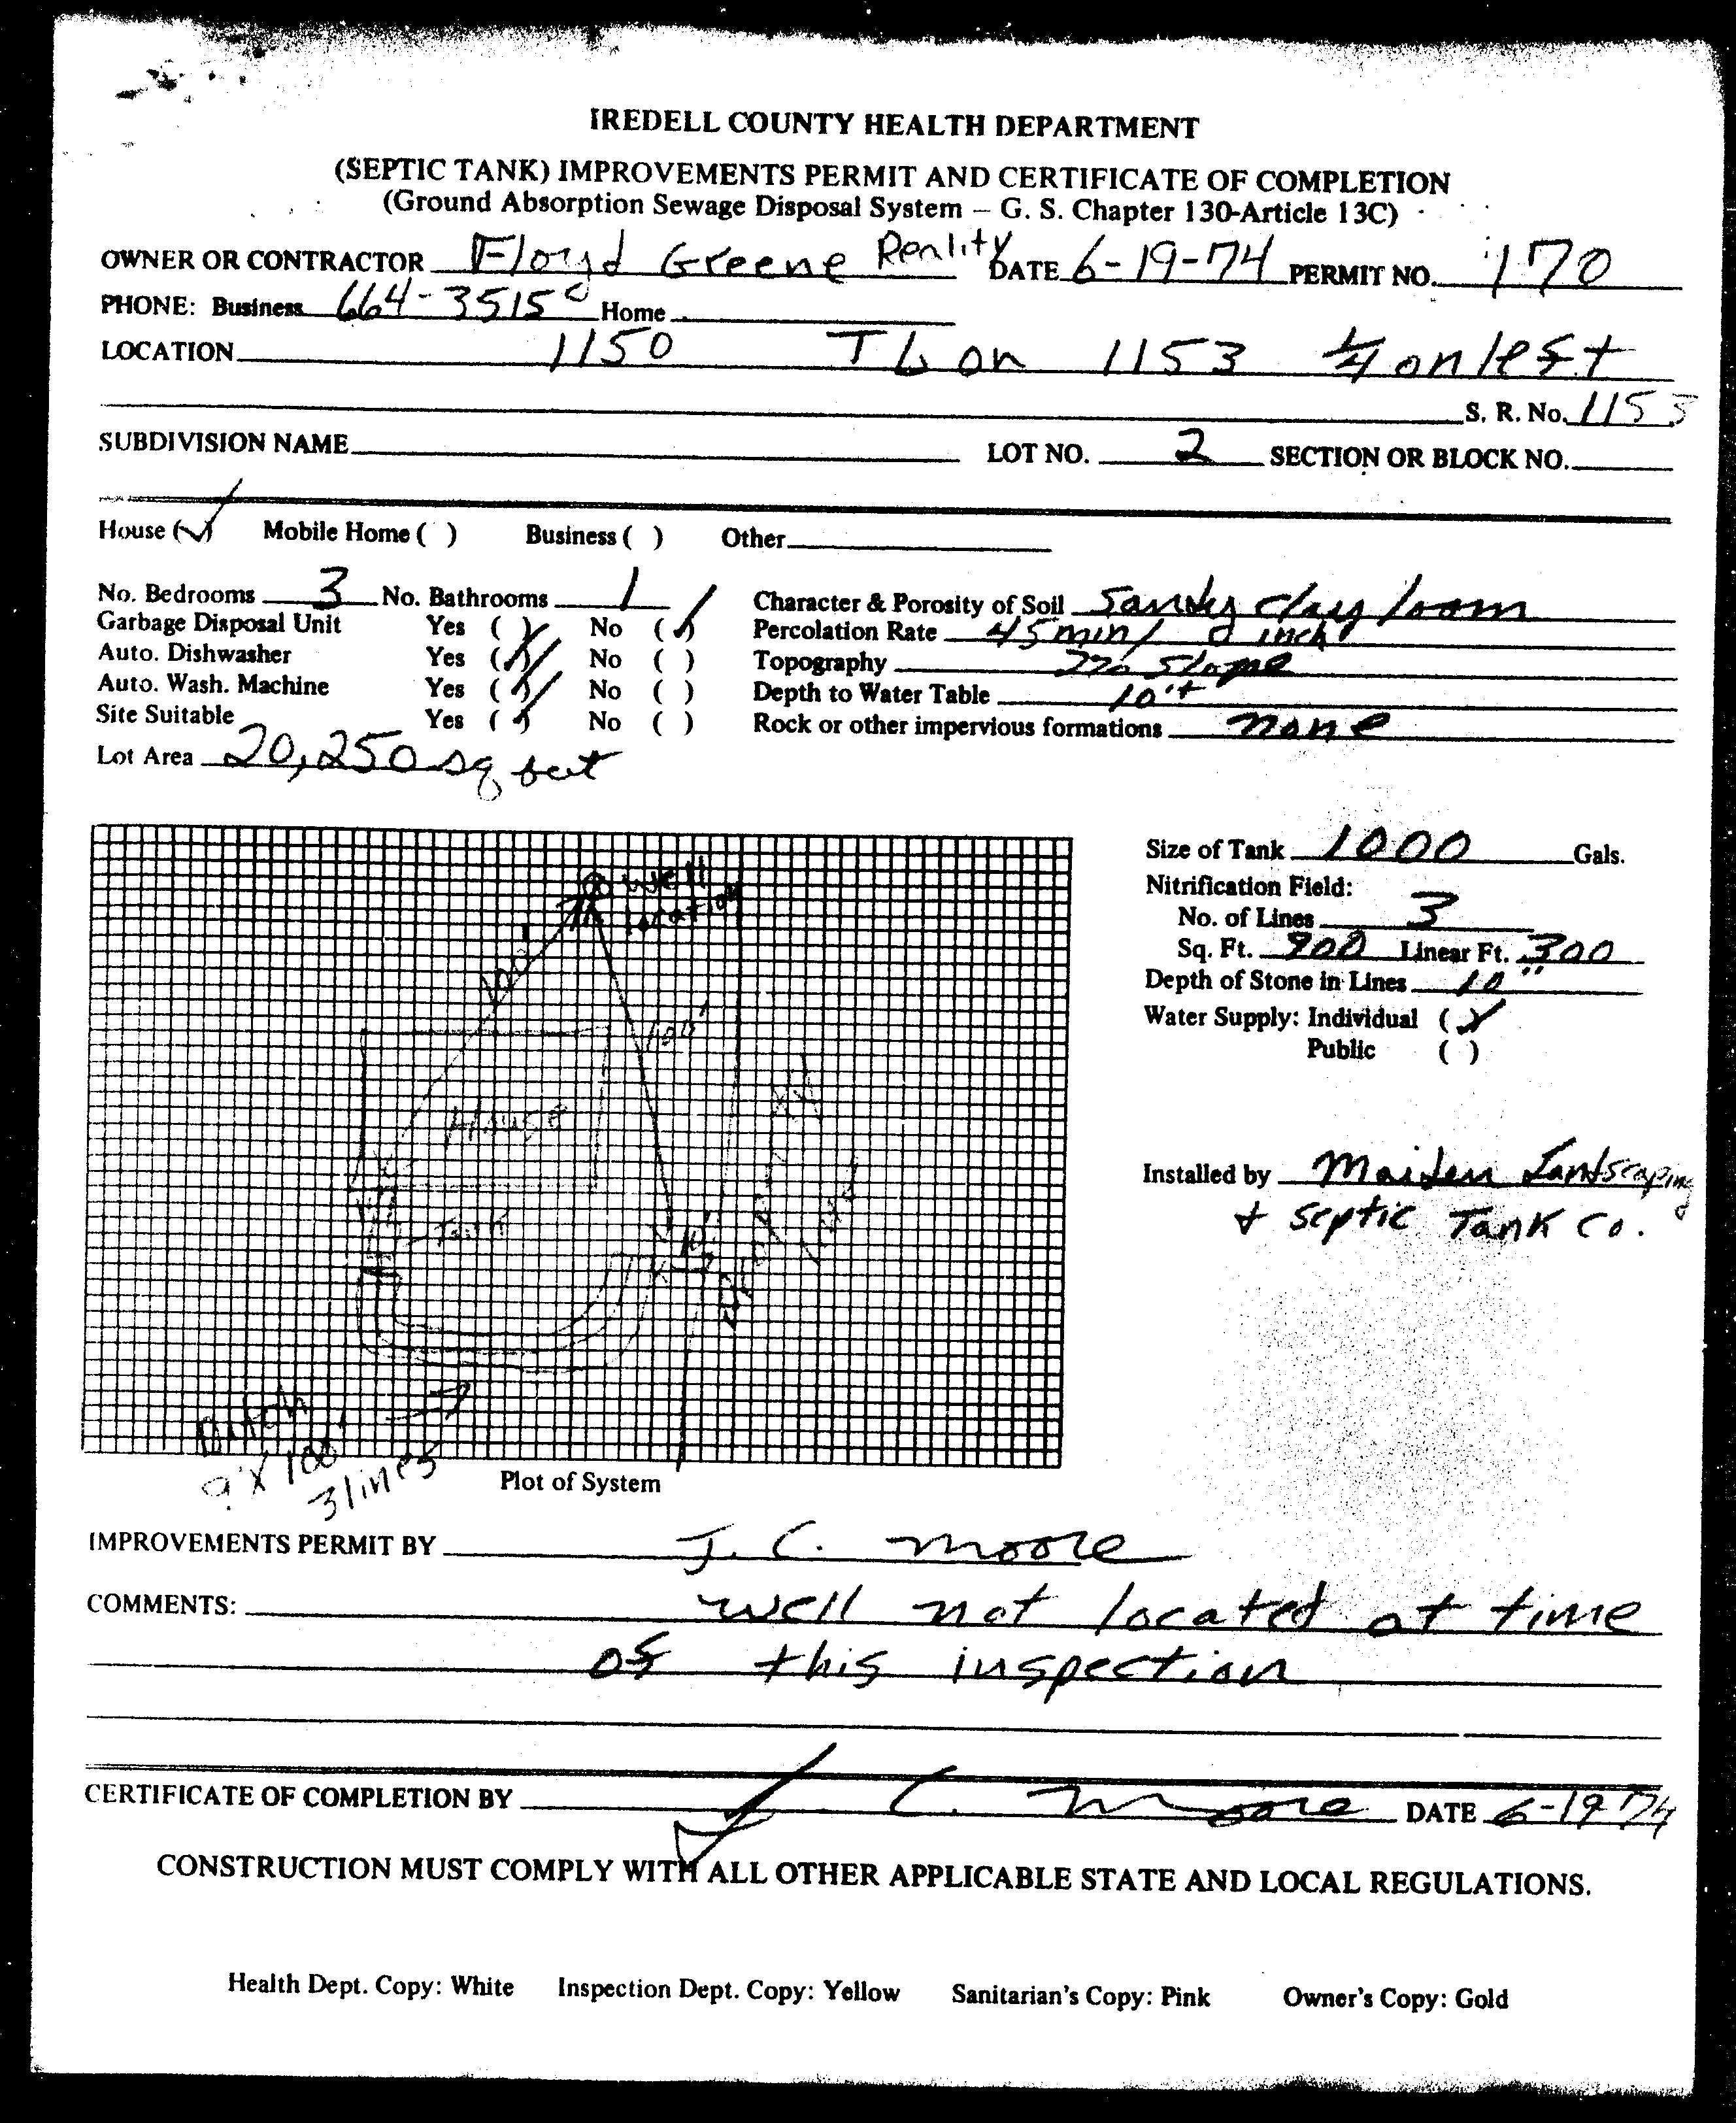 IREDELL COUNTY HEALTH DEPARTMENT
(SEPTIC TANK) IMPROVEMENTS PERMIT AND CERTIFICATE OF COMPLETION
(Ground Absorption Sewage Disposal System – G. S. Chapter 130-Article 13C)
OWNER OR CONTRACTOR Floyd Greene Reality DATE 6-19-74 PERMIT NO. 170
PHONE: Business 664-3515 Home
LOCATION 1150 TL on 1153 1/4 on left
S. R. No. 1153
SUBDIVISION NAME LOT NO. 2 SECTION OR BLOCK NO.
House (✓) Mobile Home ( ) Business ( ) Other
No. Bedrooms 3 No. Bathrooms 1 Character & Porosity of Soil Sandy clay loam
Garbage Disposal Unit Yes ( ) No (✓) Percolation Rate 45 min/ inch
Auto. Dishwasher Yes (✓) No ( ) Topography 2% Slope
Auto. Wash. Machine Yes (✓) No ( ) Depth to Water Table 10'+
Site Suitable Yes (✓) No ( ) Rock or other impervious formations none
Lot Area 20,250 sq feet
Size of Tank 1000 Gals.
Nitrification Field:
No. of Lines 3
Sq. Ft. 900 Linear Ft. 300
Depth of Stone in Lines 10"
Water Supply: Individual (✓)
Public ( )
Installed by Maiden Landscaping
+ Septic Tank Co.
well
location
100'
100'
House
Tank
10'
Line
Ditch
3 lines
Plot of System
IMPROVEMENTS PERMIT BY J. C. Moore
COMMENTS: well not located at time
of this inspection
CERTIFICATE OF COMPLETION BY J. C. Moore DATE 6-19-74
CONSTRUCTION MUST COMPLY WITH ALL OTHER APPLICABLE STATE AND LOCAL REGULATIONS.
Health Dept. Copy: White Inspection Dept. Copy: Yellow Sanitarian's Copy: Pink Owner's Copy: Gold